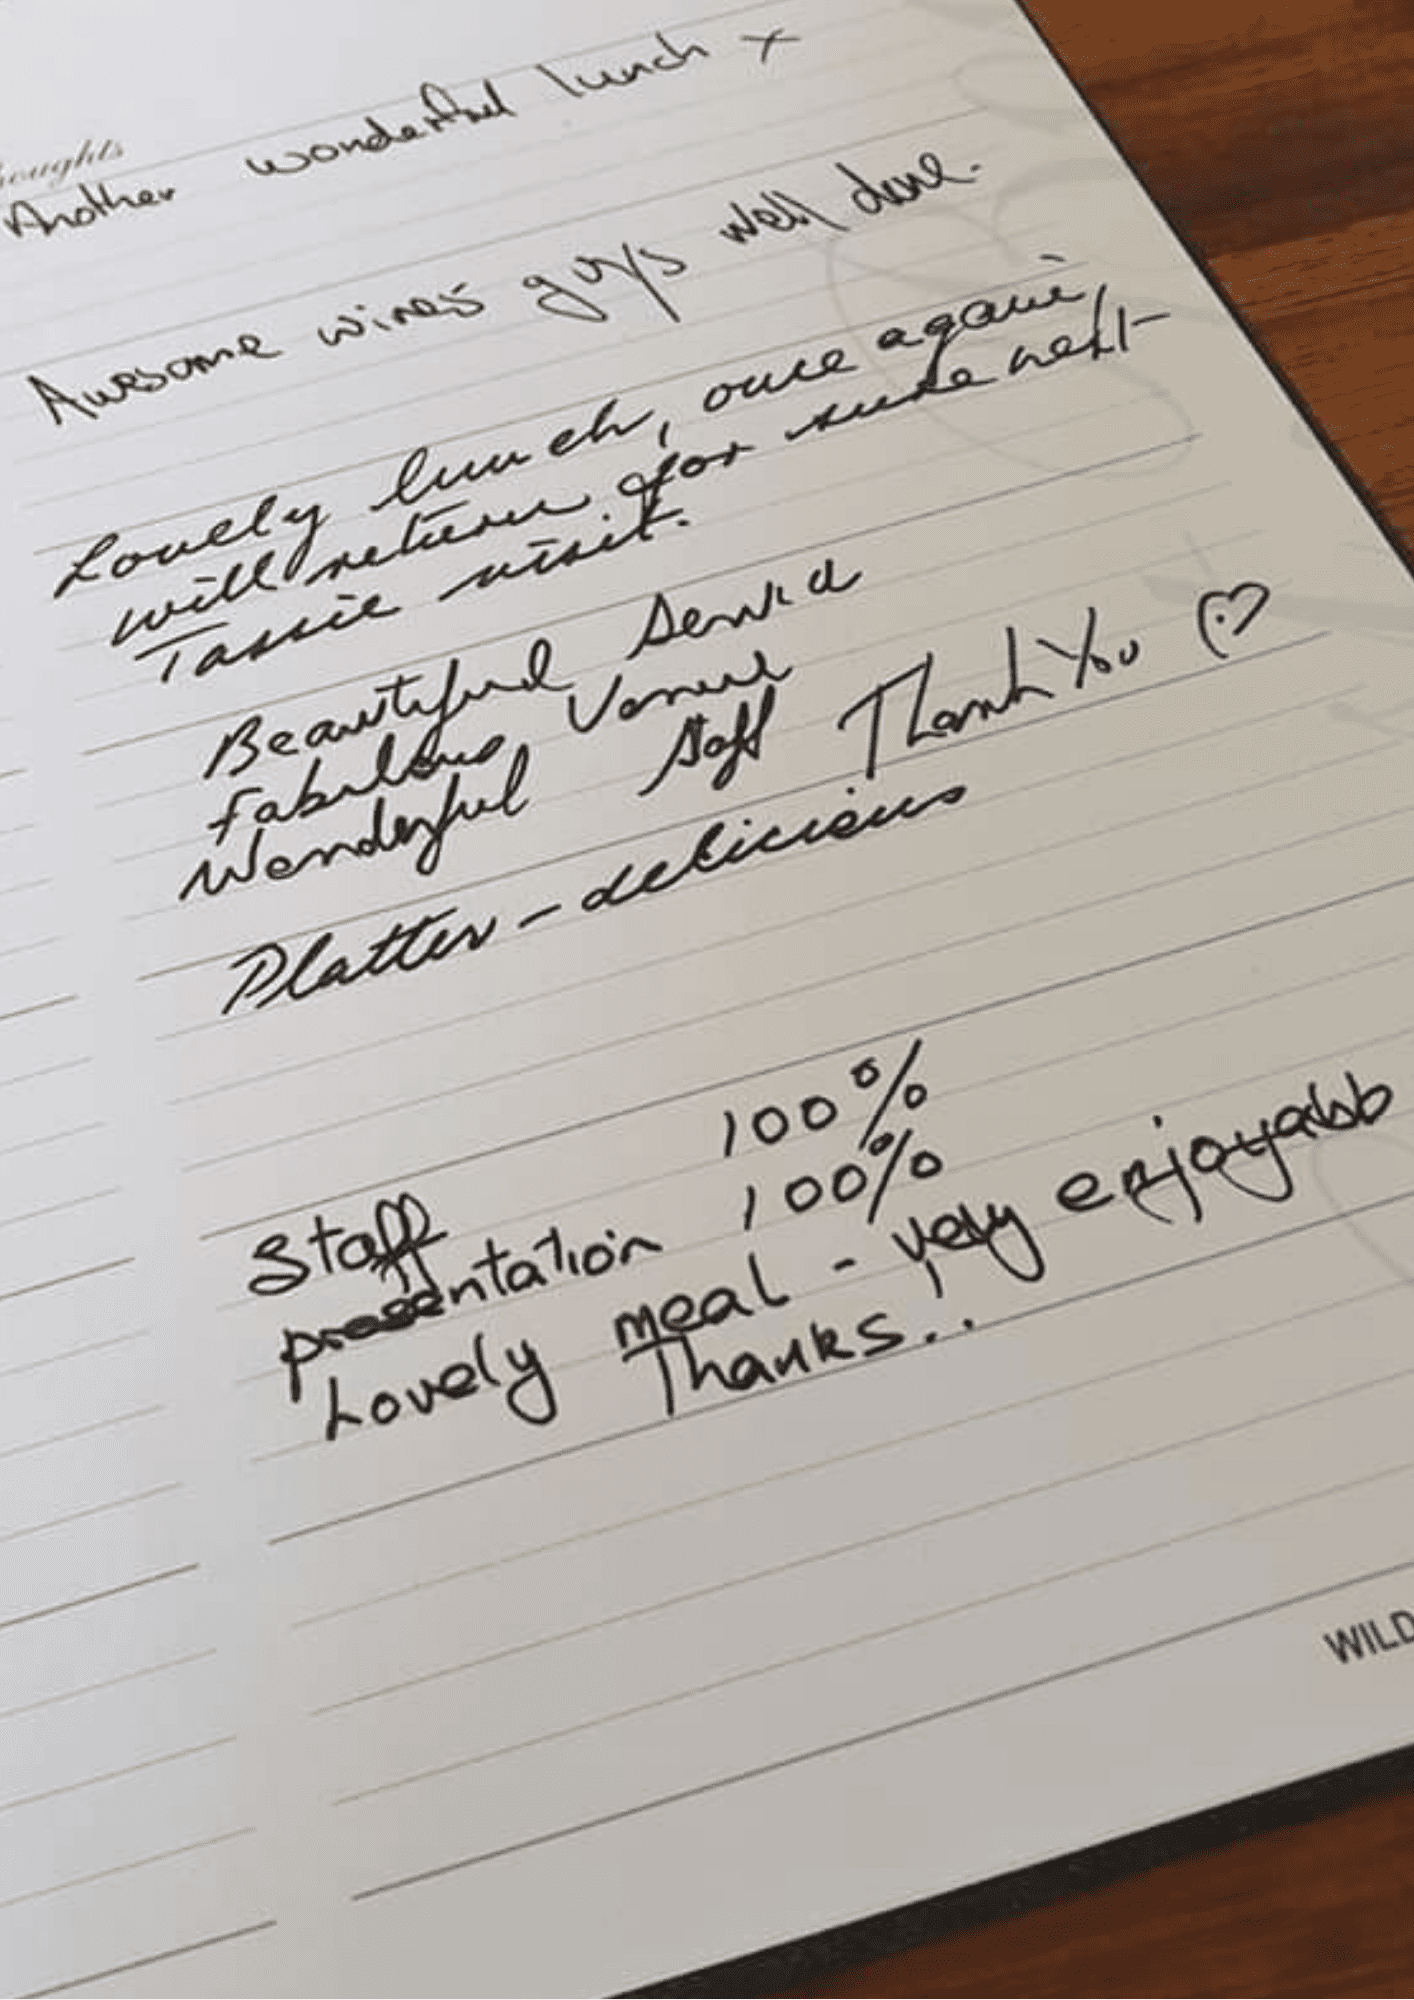 oughts
Another wonderful lunch x
Awesome wines guys well done.
Lovely lunch, once again,
will return for sure next
Tassie visit.
Beautiful Service
Fabulous Venue
Wonderful Staff Thank You
Platter - delicious
Staff 100%
presentation 100%
Lovely meal - very enjoyable
Thanks..
WILD